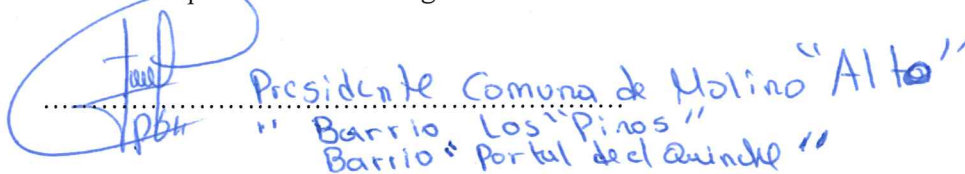 Presidente Comuna de Molino "Alto"
" Barrio Los "Pinos"
Barrio " Portal de el Quinche "